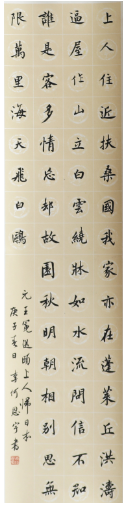 上人住近扶桑國我家亦在蓬萊丘洪濤
逼屋作山立白雲繞牀如水流問信不知
誰是客多情忘卻故園秋明朝相別思無
限萬里海天飛白鷗
元王冕送頤上人歸日本
庚子夏日